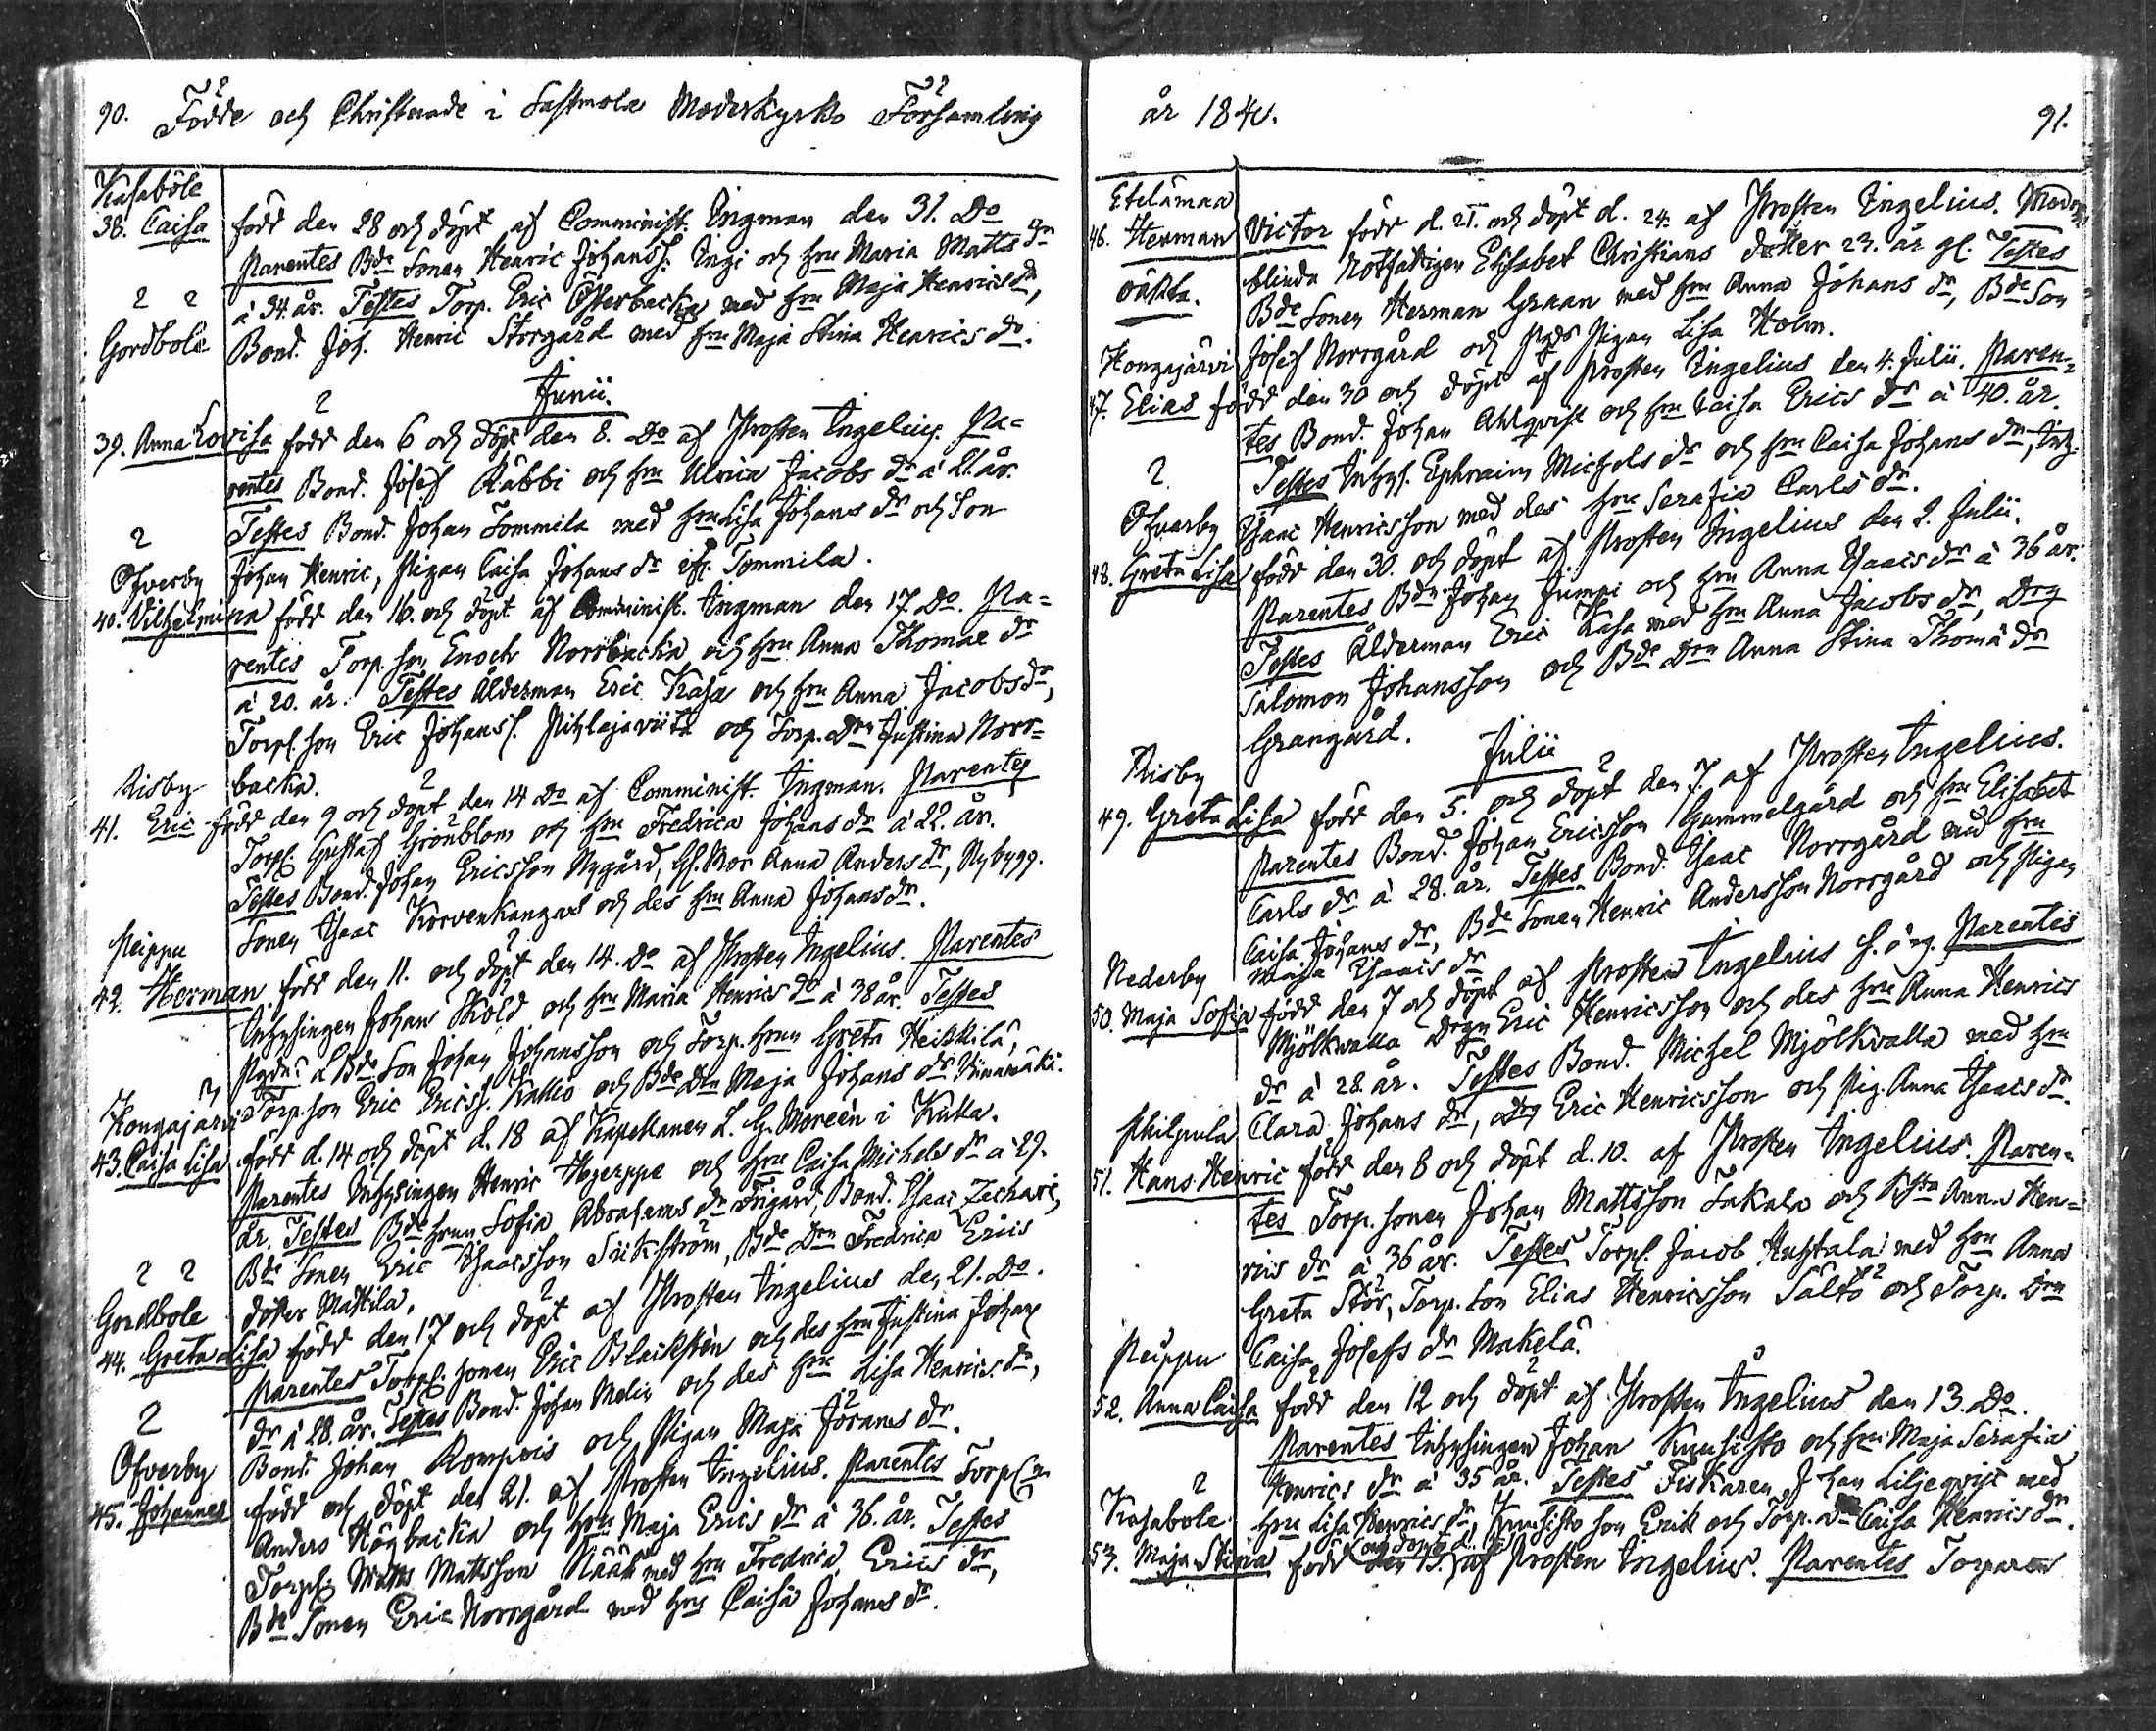 90. Födde och Christnade i Sastmola Moderkyrko Församling
Kasaböle
38. Caisa född den 28 och döpt af Comminist. Ingman den 31. Do
Parentes Bde Sonen Henric Johanss. Ingi och hru Maria Matts dr
à 34. år. Testes Torp. Eric Österbacka med hru Maja Henricsdr,
Gordböle Bond. Joh. Henric Storgård med hru Maja Stina Henrics dr.
Junii.
39. Anna Lovisa född den 6 och döpt den 8. Do af Prosten Ingelius. Pa=
rentes Bond. Josef Räbbi och hru Ulrica Jacobs dr à 21. år.
Testes Bond. Johan Tommila med hru Lisa Johans dr och Son
Öfverby Johan Henric, Pigan Caisa Johans dr Tommila.
40. Vilhelmina född den 16. och döpt af Comminist. Ingman den 17. Do. Pa=
rentes Torp. son Enoch Norrbacka och hru Anna Thomae dr
à 20. år. Testes Ålderman Eric Kasa och hru Anna Jacobsdr,
Torpf. son Eric Johanss. Pihlajaviita och Torp. Drn Justina Norr=
Risby backa.
41. Eric född den 9 och döpt den 14 Do af Comminist. Ingman. Parentes
Torpf. Gustaf Grönblom och hru Fredrica Johans dr à 22. år.
Testes Bond. Johan Ericsson Nygård, Gf. Mor Anna Anders dr, Nybygg.
Sonen Isaac Korvenkangas och des hru Anna Johansdr.
Peippu
42. Herman född den 11. och döpt den 14. Do af Prosten Ingelius. Parentes
Inhysingen Johan Sköld och hru Maria Henrics dr à 38 år. Testes
Bde Son Johan Johansson och Torp. hrun Greta Heikkilä,
Hongajärvi Torp. son Eric Ericss. Kallio och Bde Drn Maja Johans dr Viinamäki.
43. Caisa Lisa född d. 14 och döpt d. 18 af Kapellanen L. G. Moreén i Kulla.
Parentes Inhysingen Henric Hojerppe och hru Caisa Michels dr à 29.
år. Testes Bde hrun Sofia Abrahams dr Frigård, Bond. Isaac Zachari,
Bde Sonen Eric Isaacsson Siikström, Bde Drn Fredrica Erics
Gordböle doter Mattila.
44. Greta Lisa född den 17 och döpt af Prosten Ingelius den 21. Do.
Parentes Torpf. sonen Eric Blackstén och des hru Justina Johans
dr à 28. år. Testes Bond. Johan Melin och des hru Lisa Henrics dr,
Bond. Johan Rompois och Pigan Maja Jörans dr.
Öfverby
45. Johannes född och döpt den 21. af Prosten Ingelius. Parentes Torpf.
Anders Högbacka och hru Maja Erics dr à 36. år. Testes
Torpf. Matts Mattsson Nääs med hru Fredrica Erics dr,
Bde Sonen Eric Norrgård med hru Caisa Johans dr.
år 1840. 91.
Etelämaa
46. Herman Victor född d. 21. och döpt d. 24. af Prosten Ingelius. Modren
blinda Nothjonigen Elisabet Christians dotter 23. år gl. Testes
oäkta. Bde Sonen Herman Graan med hru Anna Johans dr, Bde Son
Hongajärvi Josef Norrgård och Pigan Lisa Holm.
47. Elias född den 30 och döpt af Prosten Ingelius den 4. Julii. Paren=
tes Bond. Johan Ahlqvist och hru Caisa Erics dr à 40. år.
Testes Inhys. Ephraim Michels dr och hru Caisa Johans dr, Inh.
Öfverby Isaac Henricsson med des hru Serafia Carls dr.
48. Greta Lisa född den 30. och döpt af Prosten Ingelius den 2. Julii.
Parentes Bdn Johan Jumpi och hru Anna Isaacsdr à 36 år.
Testes Ålderman Eric Kasa med hru Anna Jacobs dr, Drg
Salomon Johansson och Bde Drn Anna Stina Thomä dr
Grangård.
Julii
Risby
49. Greta Lisa född den 5. och döpt den 7. af Prosten Ingelius.
Parentes Bond. Johan Ericsson Gammelgård och hru Elisabet
Carls dr à 28. år. Testes Bond. Isaac Norrgård med hru
Caisa Johans dr, Bde Sonen Henric Andersson Norrgård och Pigan
Maja Isaacs dr
Nederby
50. Maja Sofia född den 7 och döpt af Prosten Ingelius Parentes
Mjölkvalla Drgn Eric Henricsson och des hru Anna Henrics
dr à 28. år. Testes Bond. Michel Mjölkvalla med hru
Philpula Clara Johans dr, Drg Eric Henricsson och Pig. Anna Isaacs dr.
51. Hans Henric född den 8 och döpt d. 10. af Prosten Ingelius. Paren=
tes Torp. sonen Johan Mattsson Lakala och Anna Hen=
rics dr à 36 år. Testes Torpf. Jacob Huhtala med hru Anna
Greta Stör, Torp. son Elias Henricsson Saltö och Torp. Drn
Peippu Caisa Josefs dr Mäkelä.
52. Anna Caisa född den 12 och döpt af Prosten Ingelius den 13. Do.
Parentes Inhysingen Johan Kuusisto och hru Maja Serafia
Henrics dr à 35 år. Testes Fiskaren Johan Liljeqvist med
Kasaböle hru Lisa Henrics dr, Kuusisto son Erik och Torp. Caisa Henrics dr.
53. Maja Stina född den 13. och döpt d. af Prosten Ingelius. Parentes Torparen